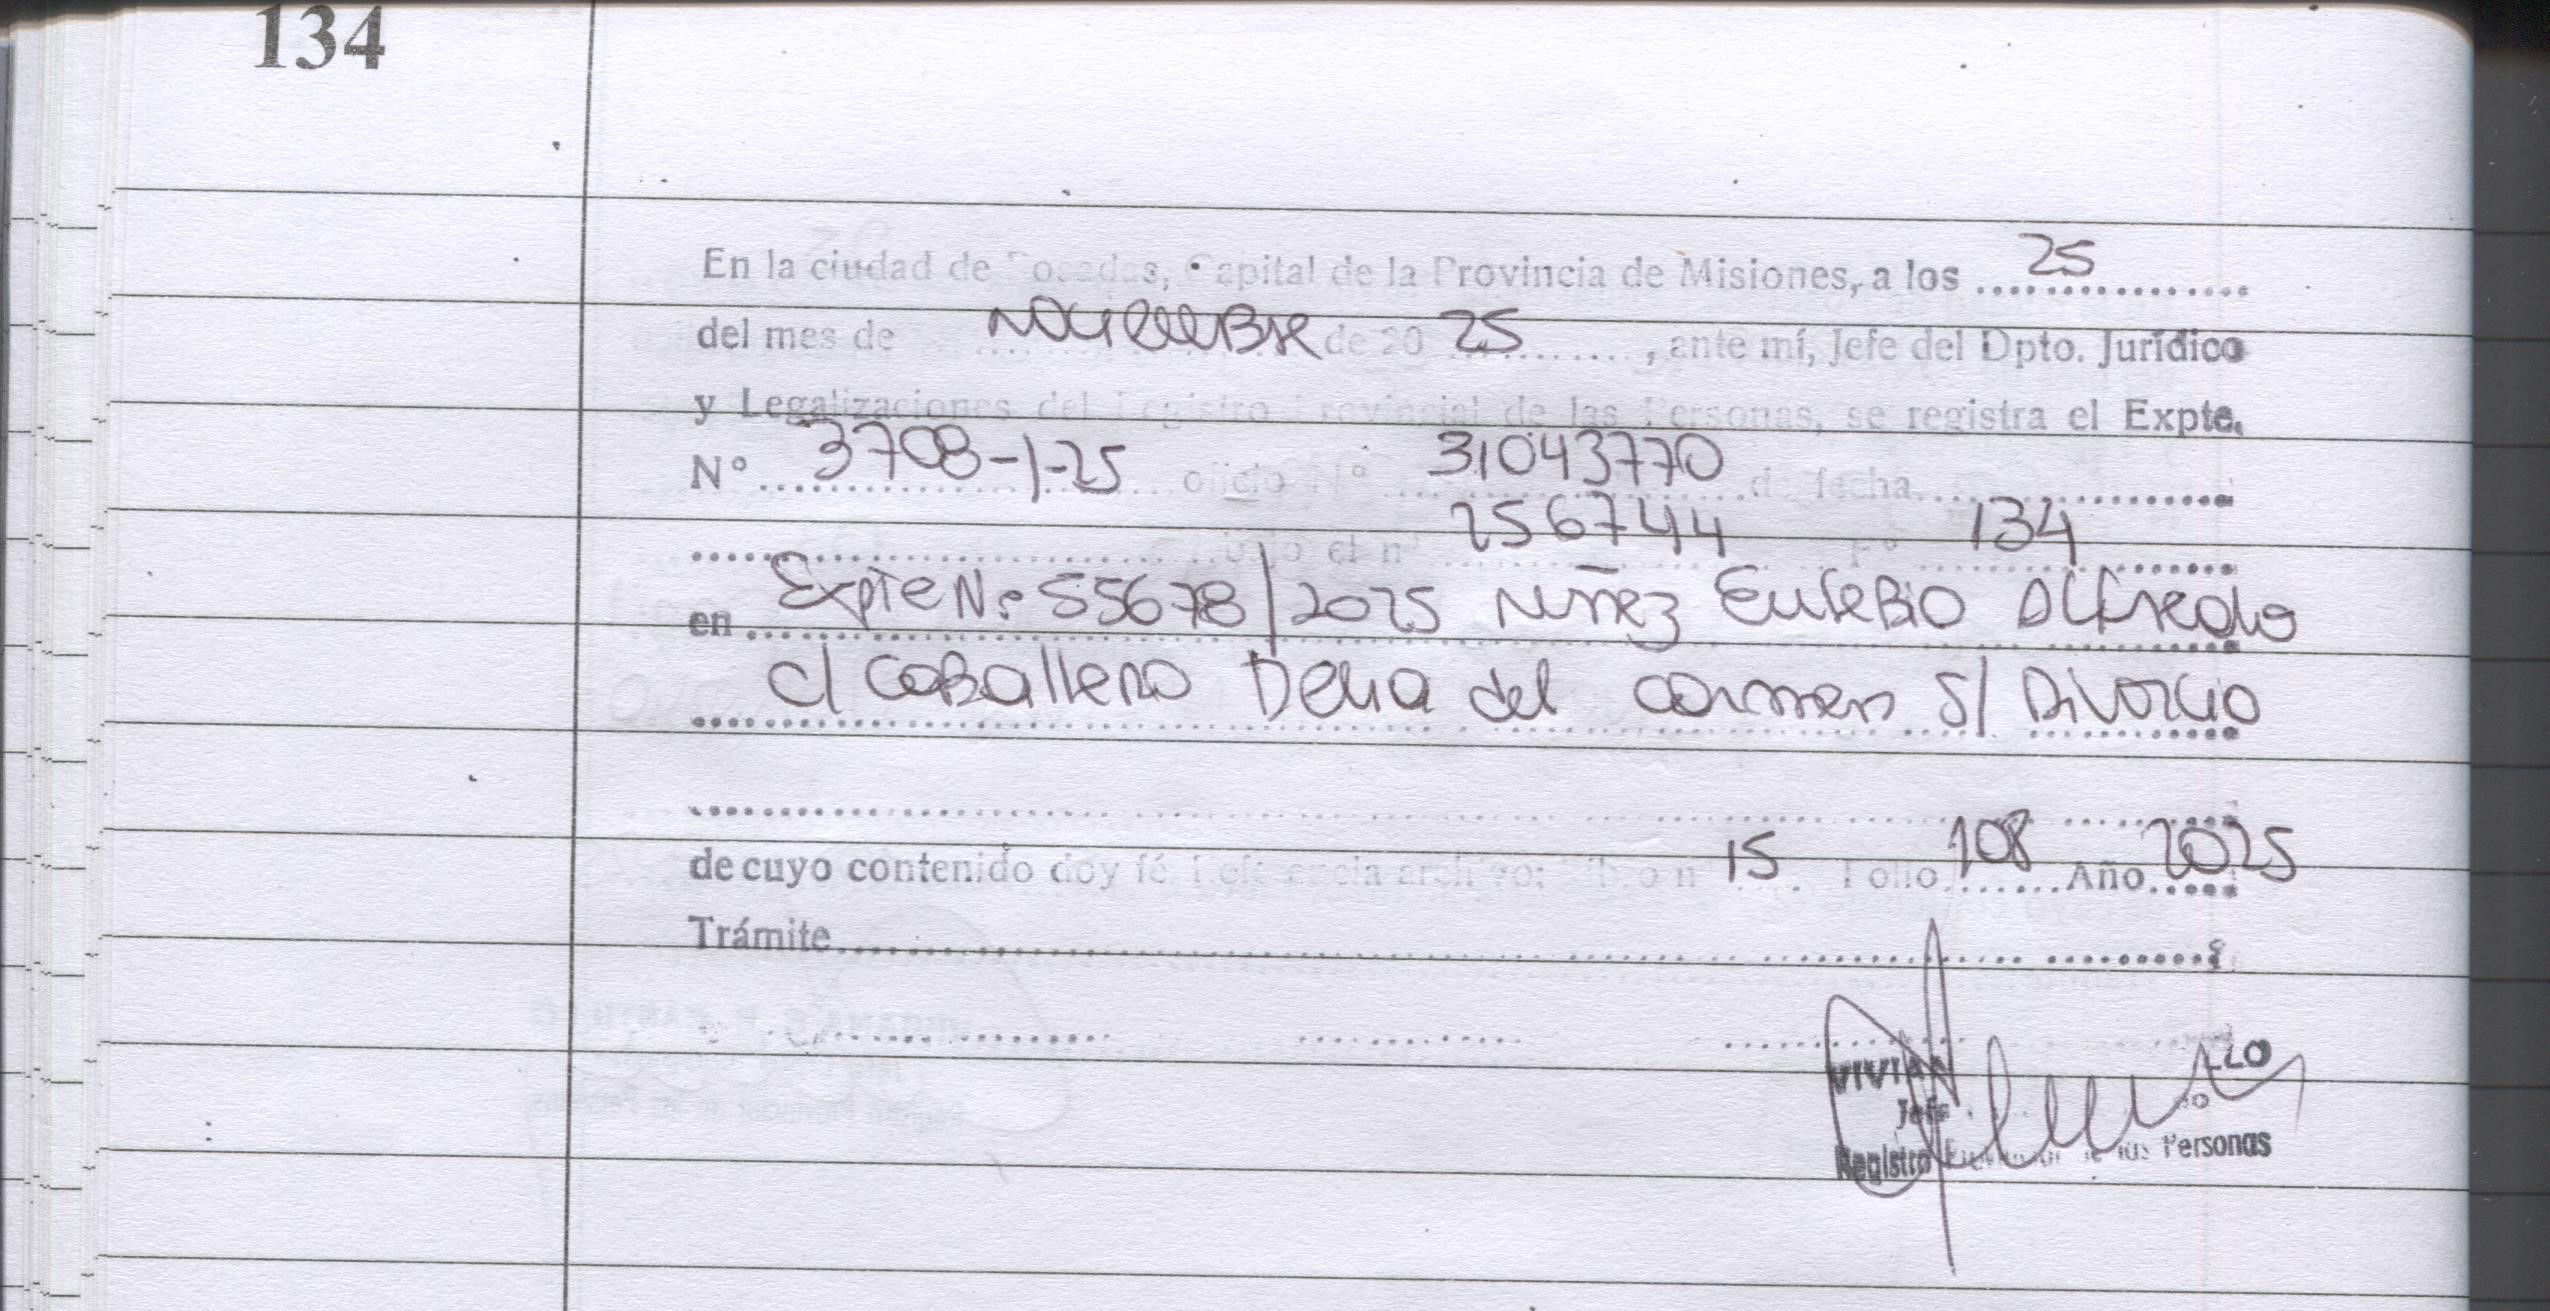 134
En la ciudad de Posadas, Capital de la Provincia de Misiones, a los 25
del mes de Noviembre de 20 25, ante mí, Jefe del Dpto. Jurídico
y Legalizaciones del Registro Provincial de las Personas, se registra el Expte.
Nº 3708-1-25 oficio Nº 31043770 de fecha
bajo el nº 256744 Fº 134
en Expte Nº 55678/2025 Nuñez Eusebio Alfredo
c/ Caballero Delia del Carmen s/ Divorcio
de cuyo contenido doy fé. Referencia archivo: Libro nº 15 Folio 108 Año 2025
Trámite
Jefe
Registro Provincial de las Personas